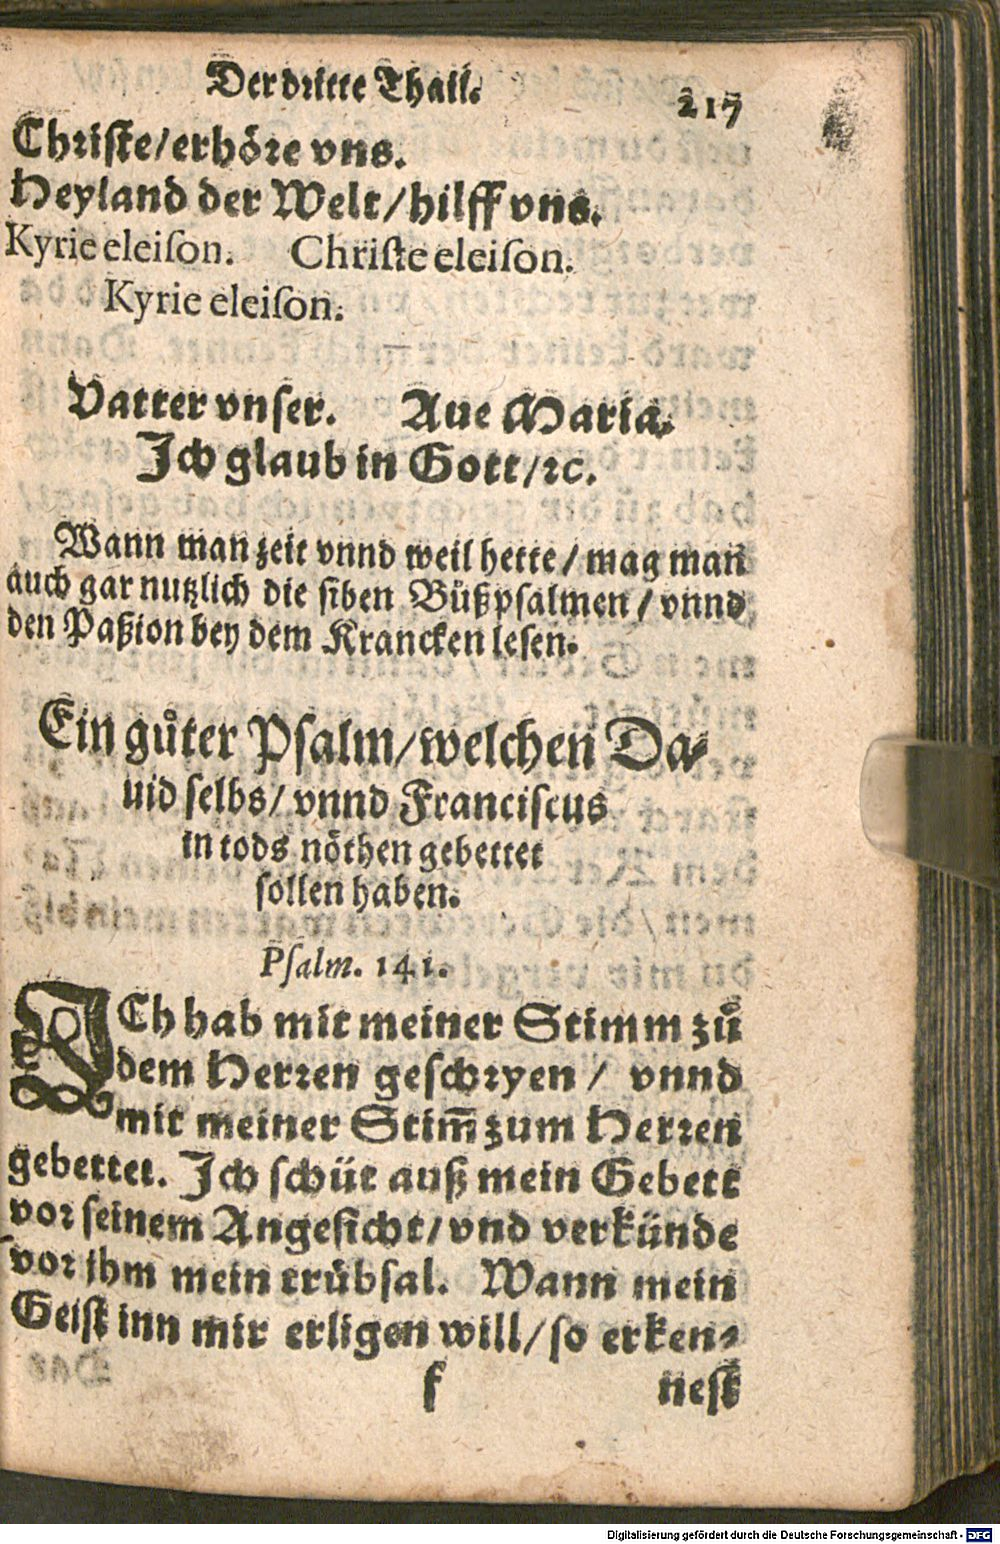 Der dritte Thail.
217
Christe/erhöre vns.
Heyland der Welt/hilff vns.
Kyrie eleiſon. Chriſte eleiſon.
Kyrie eleiſon.
Vatter vnſer. Aue Maria.
Ich glaub in Gott/ꝛc.
Wann man zeit vnnd weil hette/mag man
auch gar nutzlich die ſiben Bůßpſalmen/vnnd
den Paßion bey dem Krancken leſen.
Ein gůter Pſalm/welchen Da⸗
uid ſelbs/vnnd Franciſcus
in tods nöthen gebettet
ſollen haben.
Pſalm. 141.
ICh hab mit meiner Stimm zů
dem Herren geſchryen/ vnnd
mit meiner Stim̃ zum Herren
gebettet. Ich ſchüt auß mein Gebett
vor ſeinem Angeſicht/vnd verkünde
vor jhm mein trübſal. Wann mein
Geiſt inn mir erligen will/ſo erken⸗
f neſt
Digitalisierung gefördert durch die Deutsche Forschungsgemeinschaft - DFG